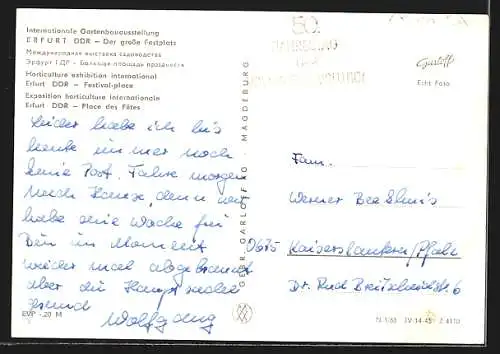 Internationale Gartenbauausstellung
ERFURT DDR – Der große Festplatz
Международная выставка садоводства
Эрфурт ГДР – Большая площадь празднеств
Horticulture exhibition international
Erfurt DDR – Festival-place
Exposition horticulture internationale
Erfurt DDR – Place des Fêtes
Leider habe ich bis
heute immer noch
keine Post. Fahre morgen
nach Hause, denn
habe eine Woche frei
Bin im Moment
wieder mal abgebrannt
aber die Hauptsache
Wolfgang
EVP -.20 M
GEBR. GARLOFF KG · MAGDEBURG
50.
Garloff
Echt Foto
Fam.
Werner
Kaiserslautern/Pfalz
Dr. Rud Breitscheidstr 6
IV-14-45